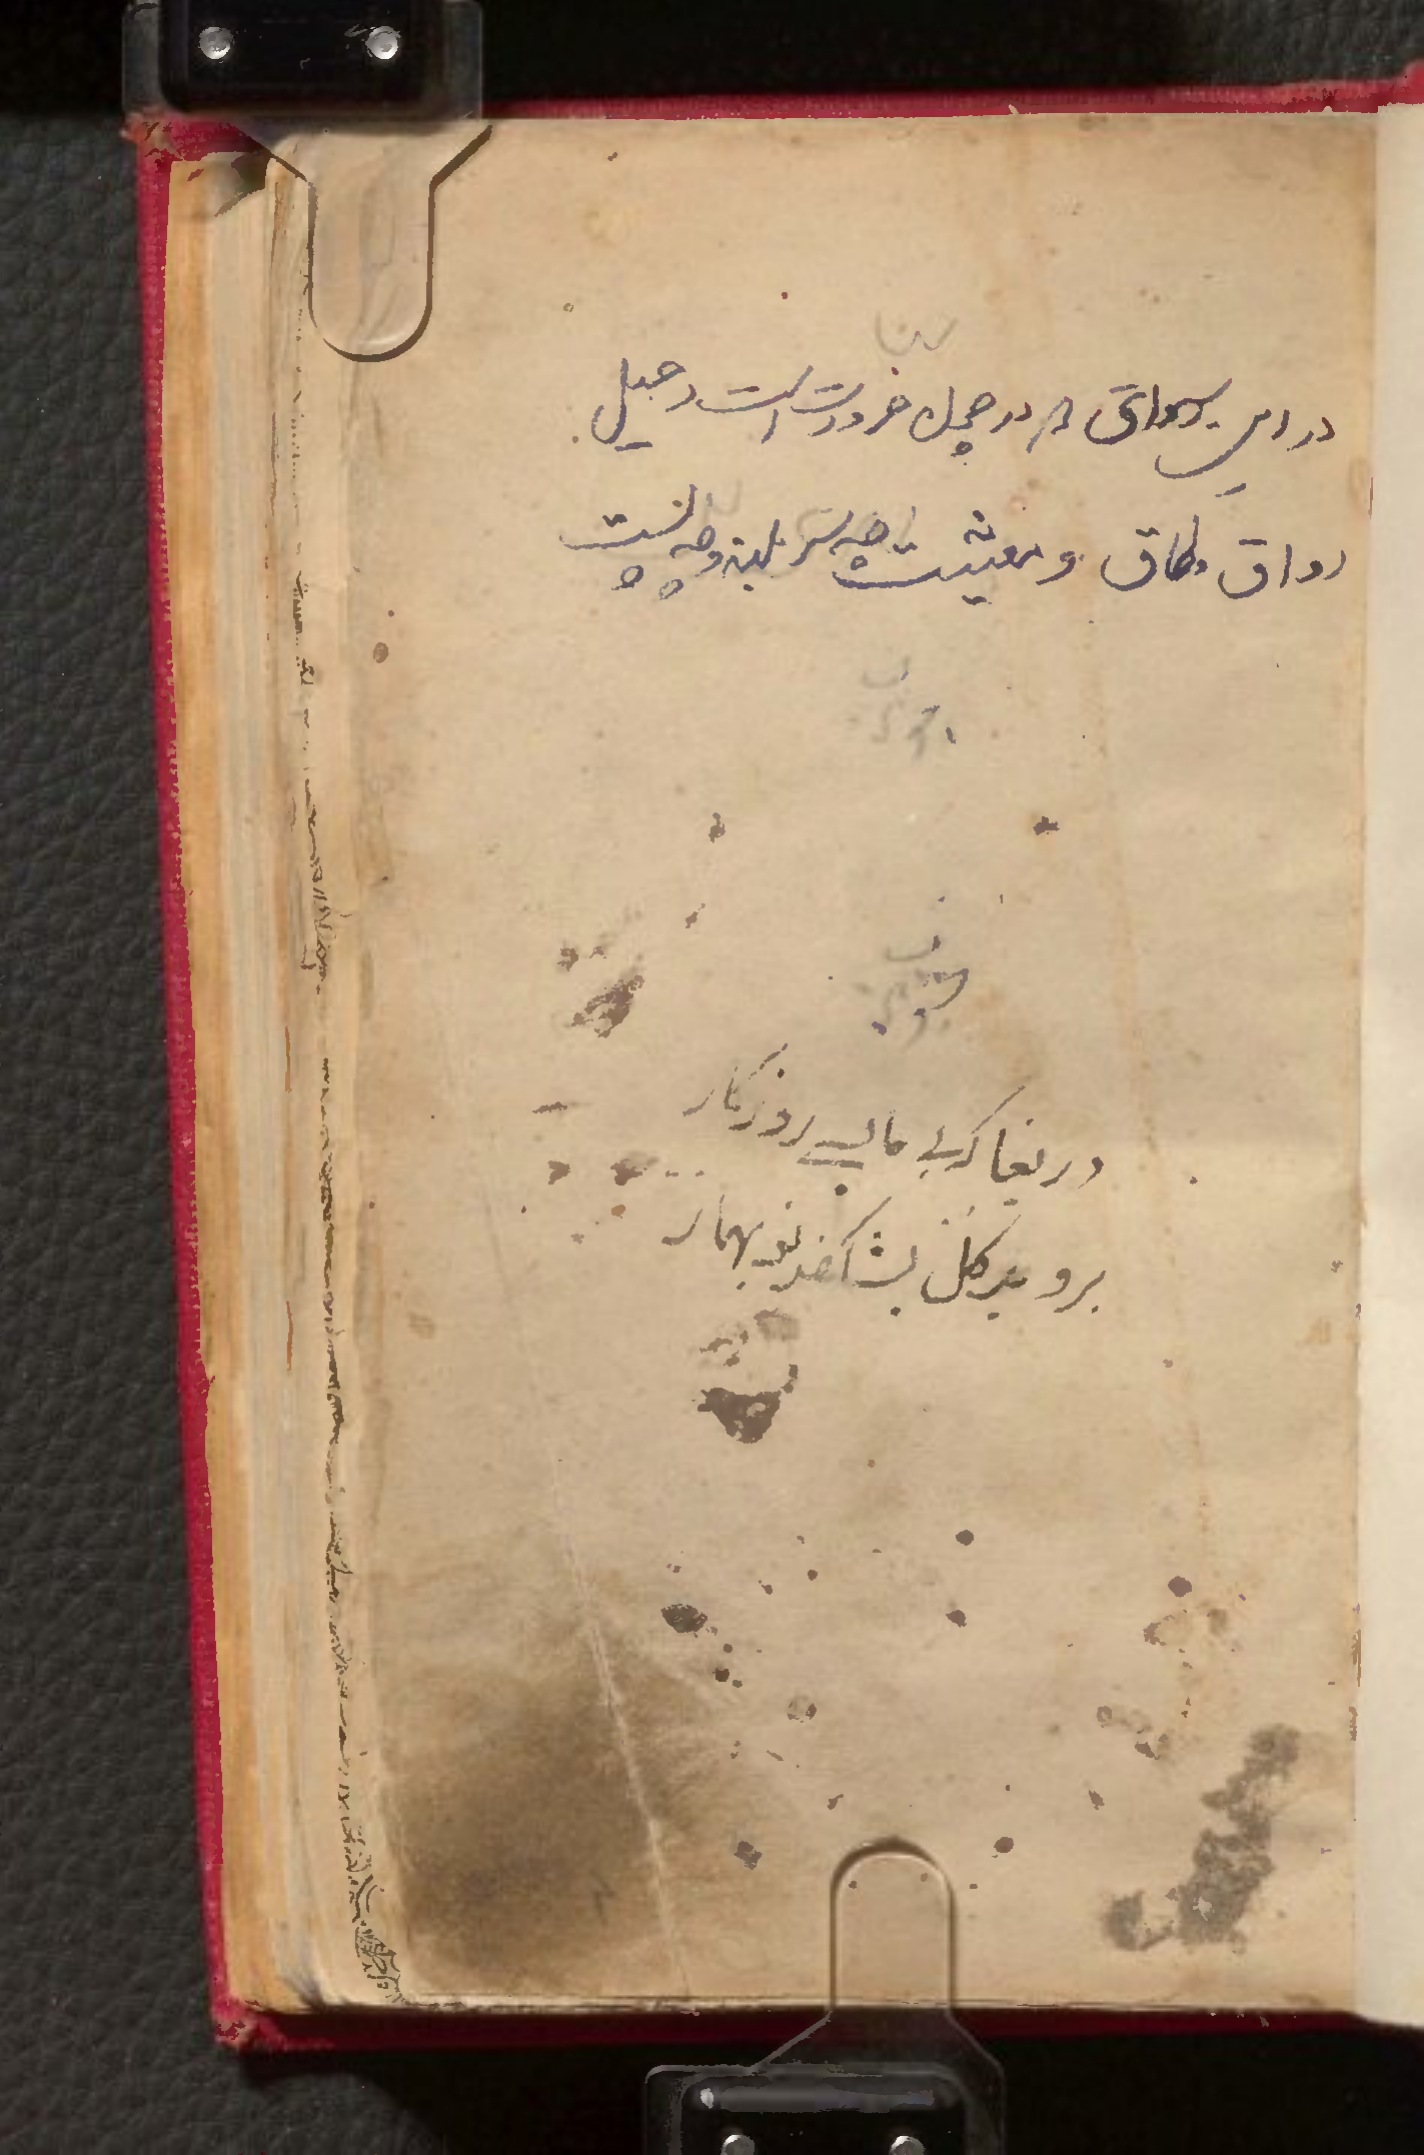 در این سرای در چو ضرورت است رحیل
رواق و طاق و معیشت چه سربلند و چه پست
دریغا که بی ما بسی روزگار
بروید گل بشکفد نو بهار